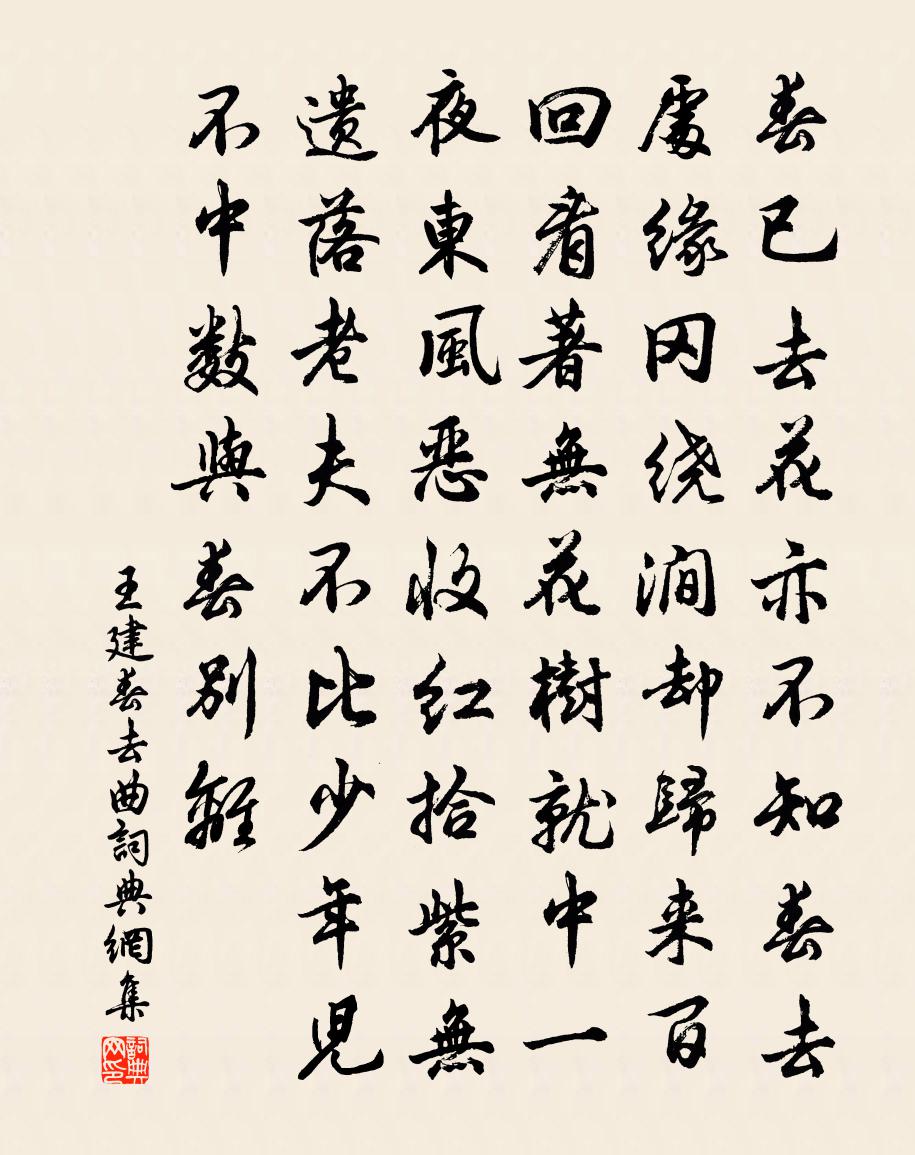 春已去花亦不知春去
處缘冈绕澗却歸来百
回看著無花樹就中一
夜東風恶收红拾紫無
遗落老夫不比少年児
不中数與春别離
王建春去曲詞典網集
詞典网印